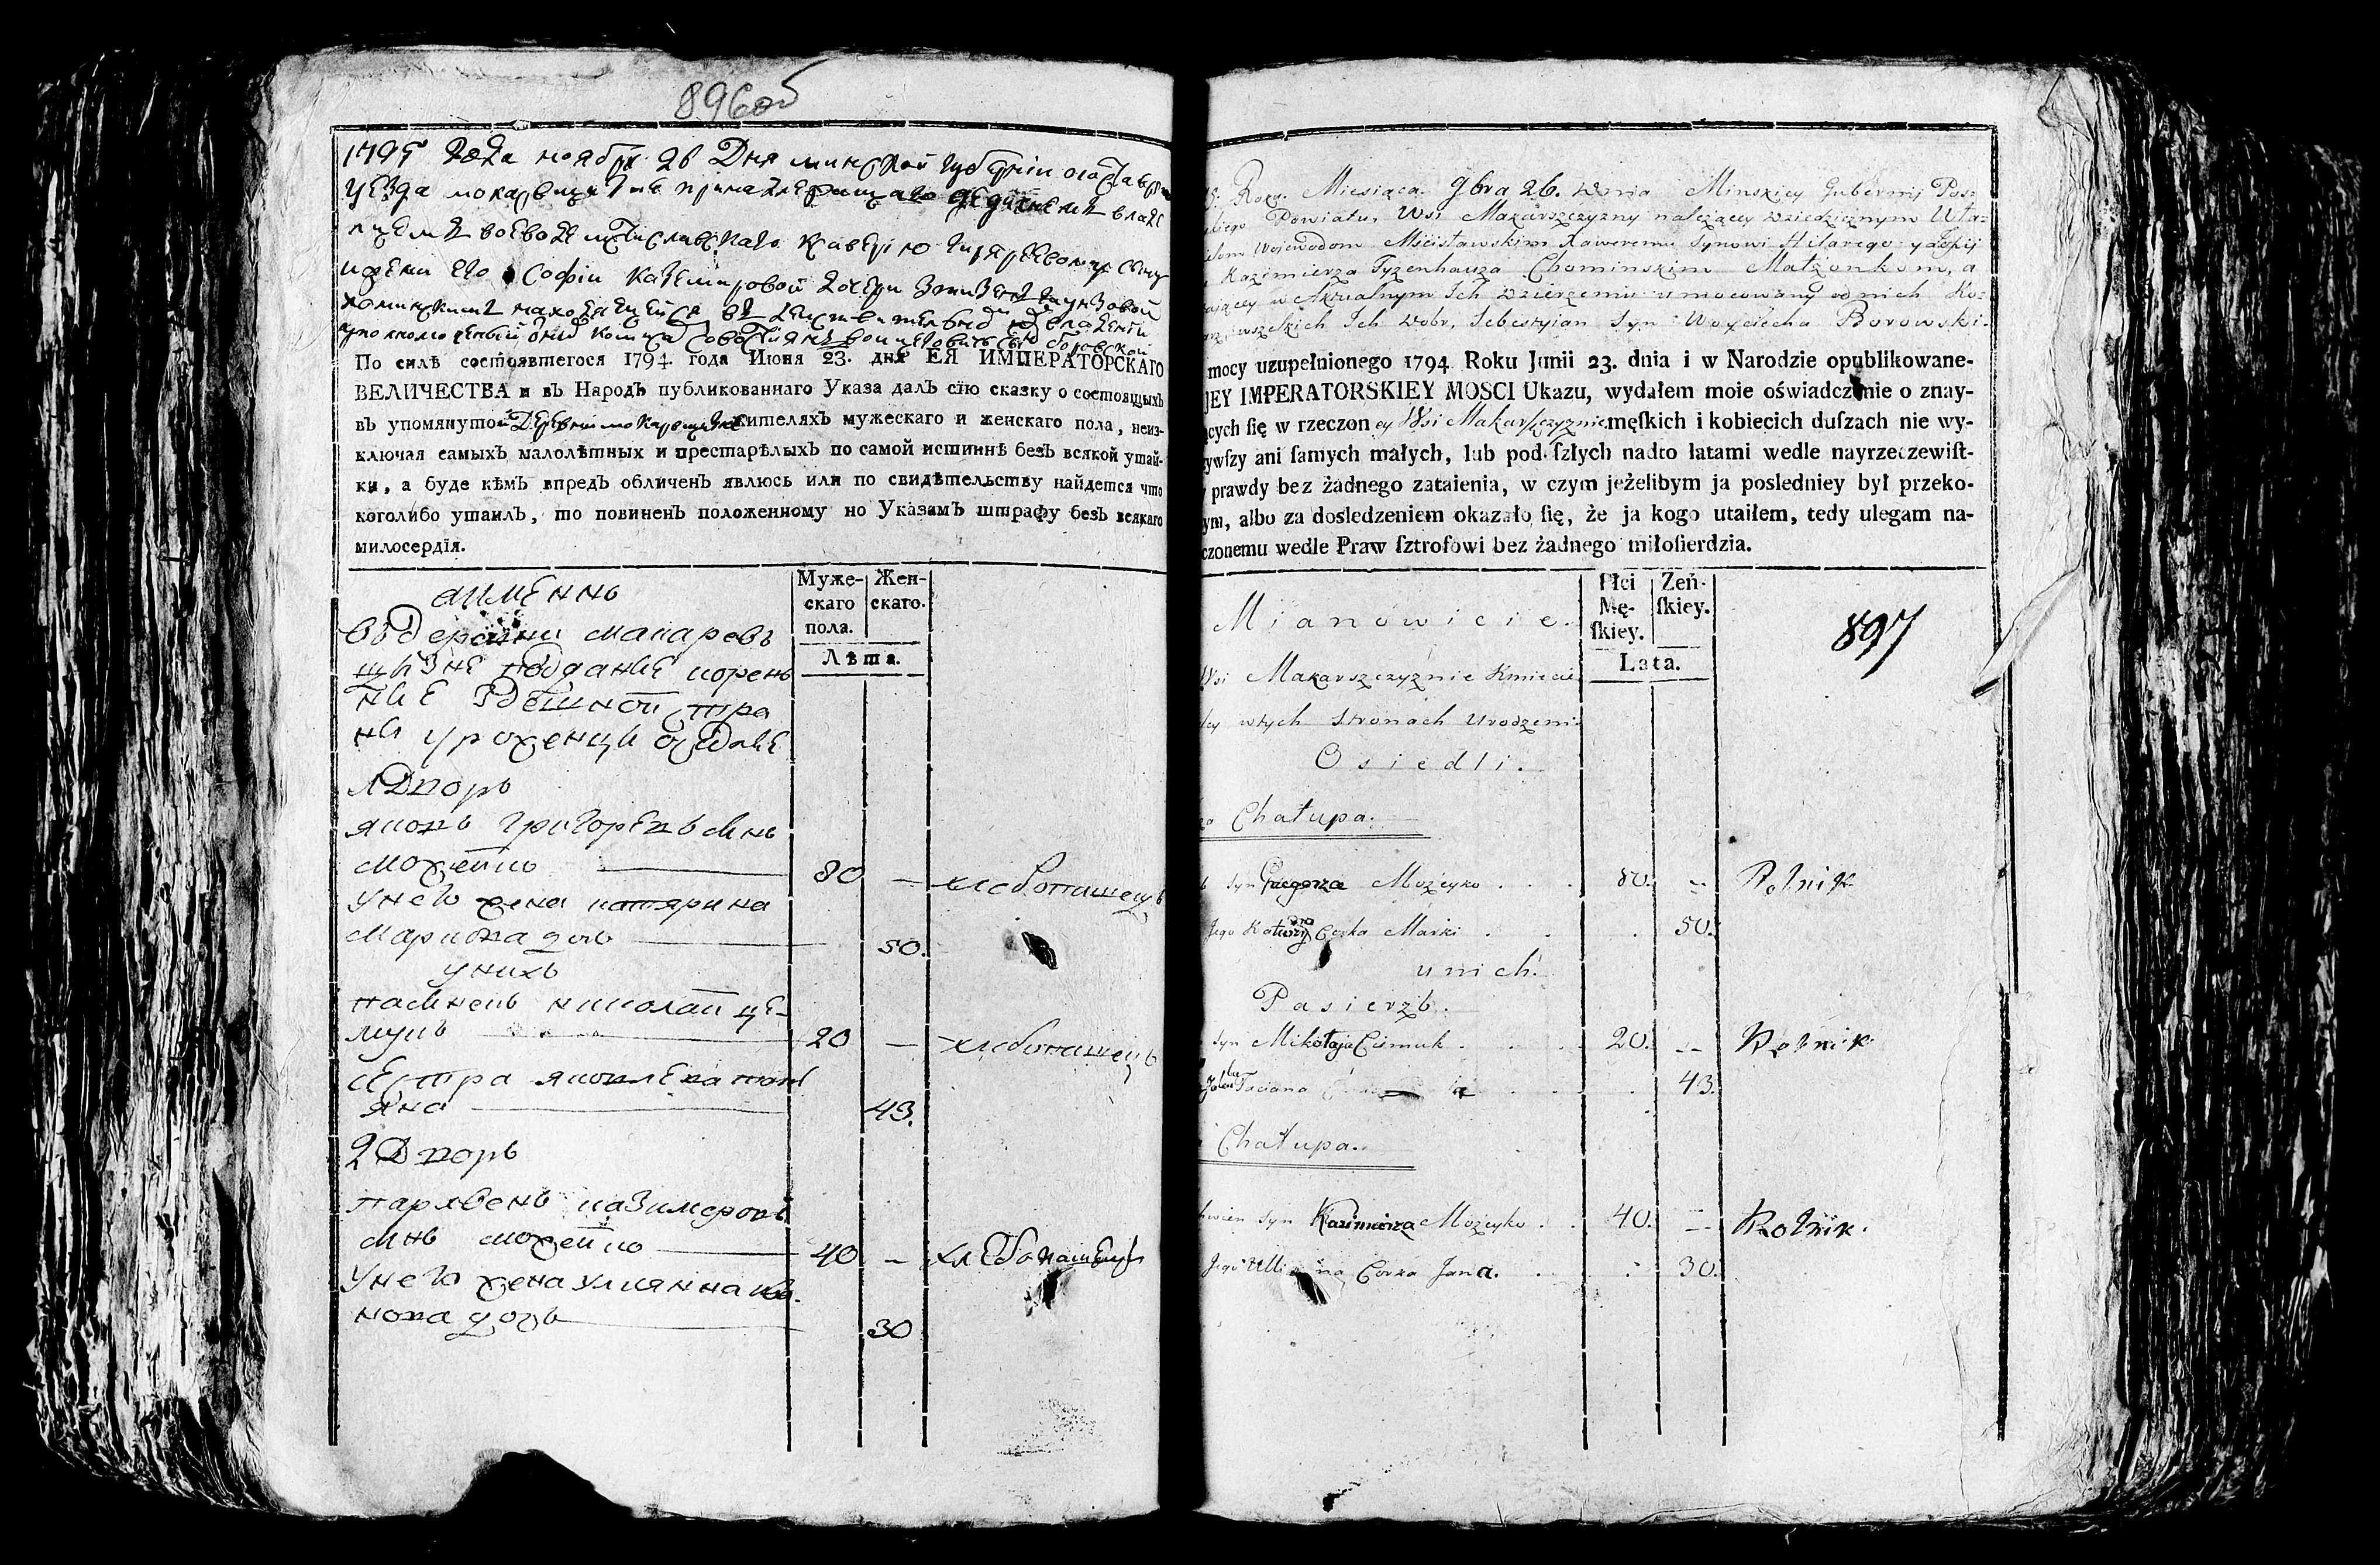 896об
1795 года ноября 26 Дня минской губернии
уезда
воеводе мстиславскаго
его Софіи Казимировой дочери
По силѣ состоявшегося 1794 года Июня 23. дня ЕЯ ИМПЕРАТОРСКАГО
ВЕЛИЧЕСТВА и въ Народъ публикованнаго Указа далъ сїю сказку о состоящыхъ
въ упомянутой Деревни жителяхъ мужескаго и женскаго пола, неиз-
ключая самыхъ малолѣтныхъ и престарѣлыхъ по самой истиннѣ безъ всякой утай-
ки, а буде кѣмъ впредъ обличенъ явлюсь или по свидѣтельству найдется что
коголибо утаилъ, то повиненъ положенному по Указамъ штрафу безъ всякаго
милосердїя.
Муже-
скаго
пола.
Жен-
скаго.
Лѣта.
аименнь
въ деревни макаров
щизне подданые корен
ние здешной стра
ни уроженци
1 Дворъ
яковъ григоревъ синъ
можейко 80 — хлебопашецъ
у него жена катярина
маркова дочь 50.
у нихъ
пасинокъ николай це-
мукъ 20 — хлебопашецъ
сестра яковлева тати
яна 43.
2 Дворъ
пархвенъ казимеровъ
синъ можейко 40 — хлебопашецъ
у него жена улиянна ива
нова дочъ 30
Roku Miesiąca 9bra 26. Dnia Minskiey Gubernij
Powiatu, Wsi Makarszczyzny należącey dziedzicznym
Wojewodom Mścisławskim Xaweremu Synowi Hilarego y Zofij
Kazimierza Tyzenhauza Chominskim Małżonkom, a
w Aktualnym Ich dzierżeniu umocowany od nich
wszelkich Ich dobr, Sebestyian Syn Woyciecha Borowski.
mocy uzupełnionego 1794 Roku Junii 23. dnia i w Narodzie opublikowane-
JEY IMPERATORSKIEY MOSCI Ukazu, wydałem moie oświadczenie o znay-
ących ſię w rzeczoney Wsi Makarszczyznie męſkich i kobiecich duſzach nie wy-
ywſzy ani ſamych małych, lub podſzłych nadto latami wedle nayrzeczewiſt-
prawdy bez żadnego zataienia, w czym jeżelibym ja posledniey był przeko-
ym, albo za dosledzeniem okazało ſię, że ja kogo utaiłem, tedy ulegam na-
czonemu wedle Praw ſztrofowi bez żadnego miłoſierdzia.
Mianowicie.
Płci
Mę-
ſkiey.
Zeń-
ſkiey.
Lata.
897
Wsi Makarszczyznie Kmiecie
w tych Stronach Urodzeni
Osiedli.
Chałupa.
Syn Gregorza Możeyko 80. Rolnik
Jego Corka Marki 50.
u nich.
Pasierzb.
syn Mikołaja Ciomuk 20. Rolnik
Taciana 43.
Chałupa.
Syn Kazimierza Możeyko 40. Rolnik.
Jego Corka Jana. 30.